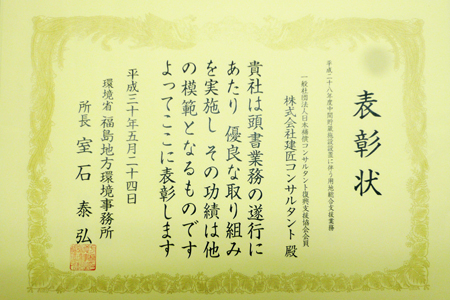 表彰状
平成二十八年度中間貯蔵施設設置に伴う用地総合支援業務
一般社団法人日本補償コンサルタント復興支援協会会員
株式会社建匠コンサルタント 殿
貴社は頭書業務の遂行に
あたり 優良な取り組み
を実施し その功績は他
の模範となるものです
よってここに表彰します
平成三十年五月二十四日
環境省 福島地方環境事務所
所長 室石 泰弘